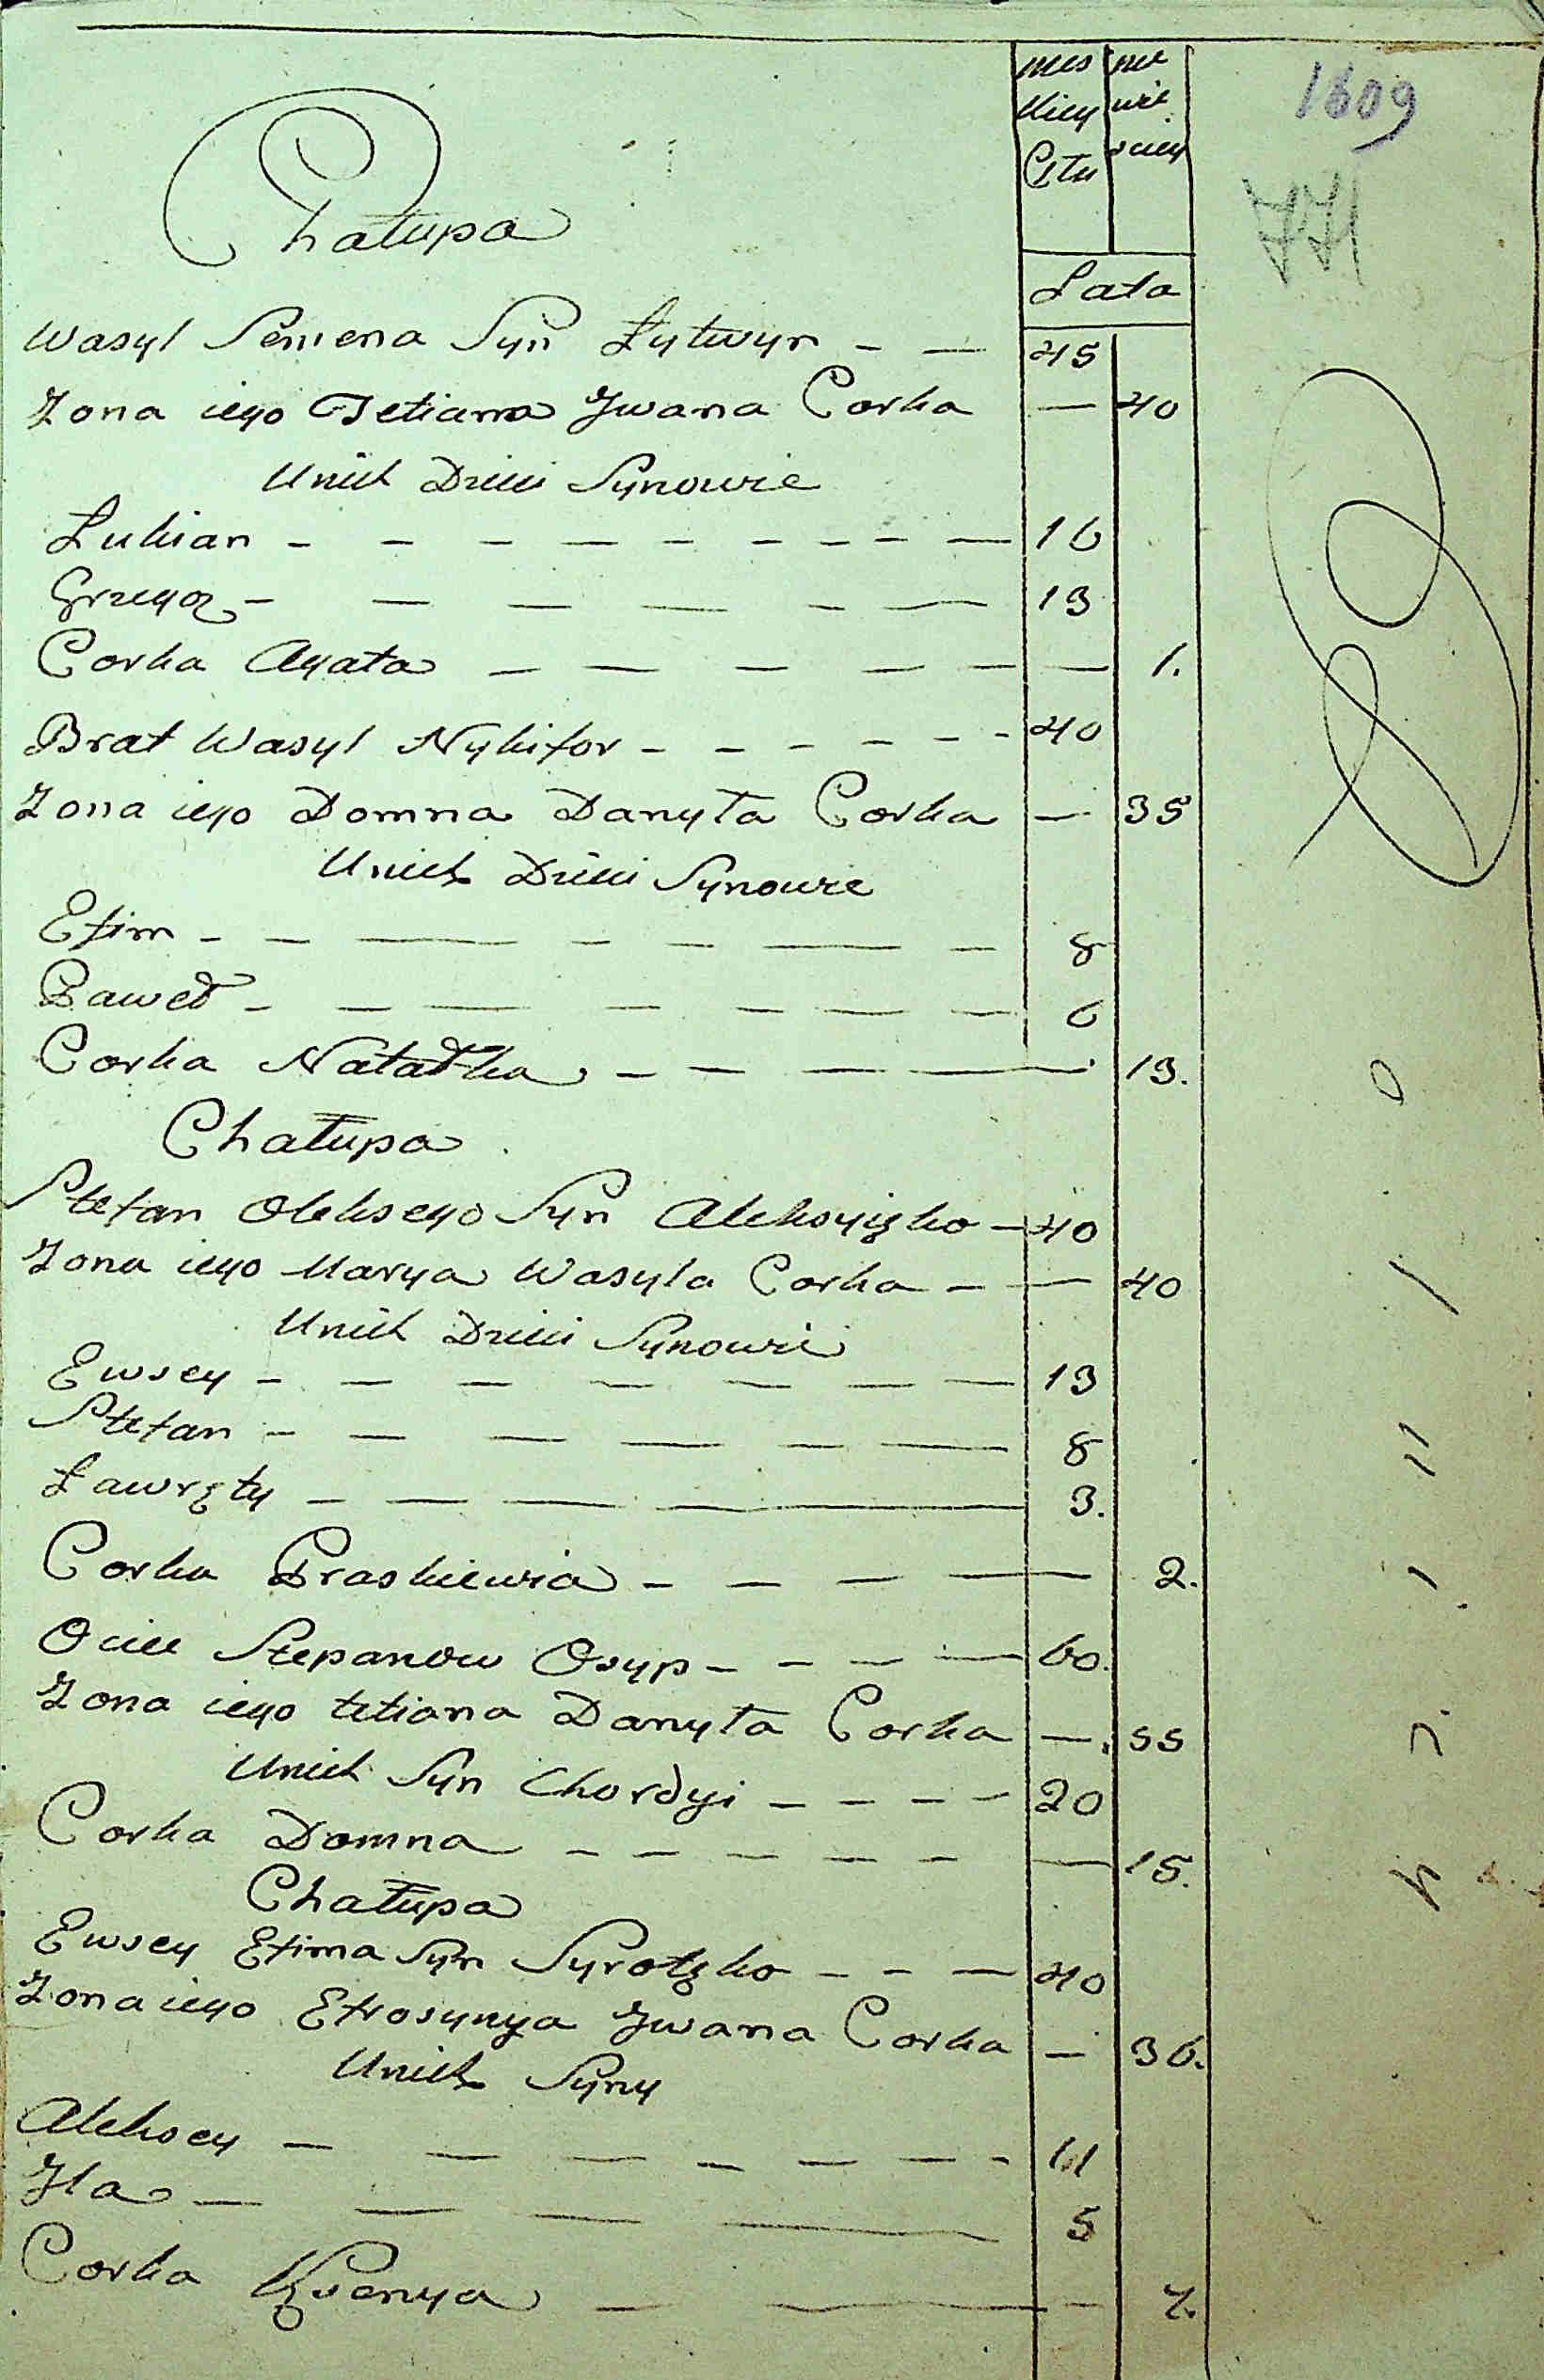 mes nie
kiey wie
Płci sciey
1809
771
Chałupa
Lata
Wasyl Semena Syn Łytwyn - - 45
Zona iego Tetianna Jwana Corka - 40
Unich Dzieci Synowie
Lukian - - - - - - - - - 16
Grzegoz - - - - - - 13
Corka Agata - - - - - - 1.
Brat Wasyl Nykifor - - - - - - 40
Zona iego Domna Danyła Corka - 35
Unich Dzieci Synowie
Efim - - - - - - - 8
Paweł - - - - - - - 6
Corka Natałka - - - - 13.
Chałupa
Stefan Olekseyo Syn Alekoyięko - 40
Zona iego Marya Wasyla Corka - - 40
Unich Dzieci Synowie
Ewsey - - - - - - - 13
Stefan - - - - - - 8
Ławręty - - - - - 3.
Corka Praskiewia - - - - 2.
Ociec Stepanow Osyp - - - - 60.
Zona iego tetiana Danyła Corka - 55
Unich Syn Chordyi - - - - 20
Corka Domna - - - - - - 15.
Chałupa
Ewsey Efima Syn Syrotęko - - - 40
Zona iego Efrosynya Jwana Corka - 36.
Unich Syny
Aleksey - - - - - - - 11
Jla - - - - - 5
Corka Kęsenya - - - 7.